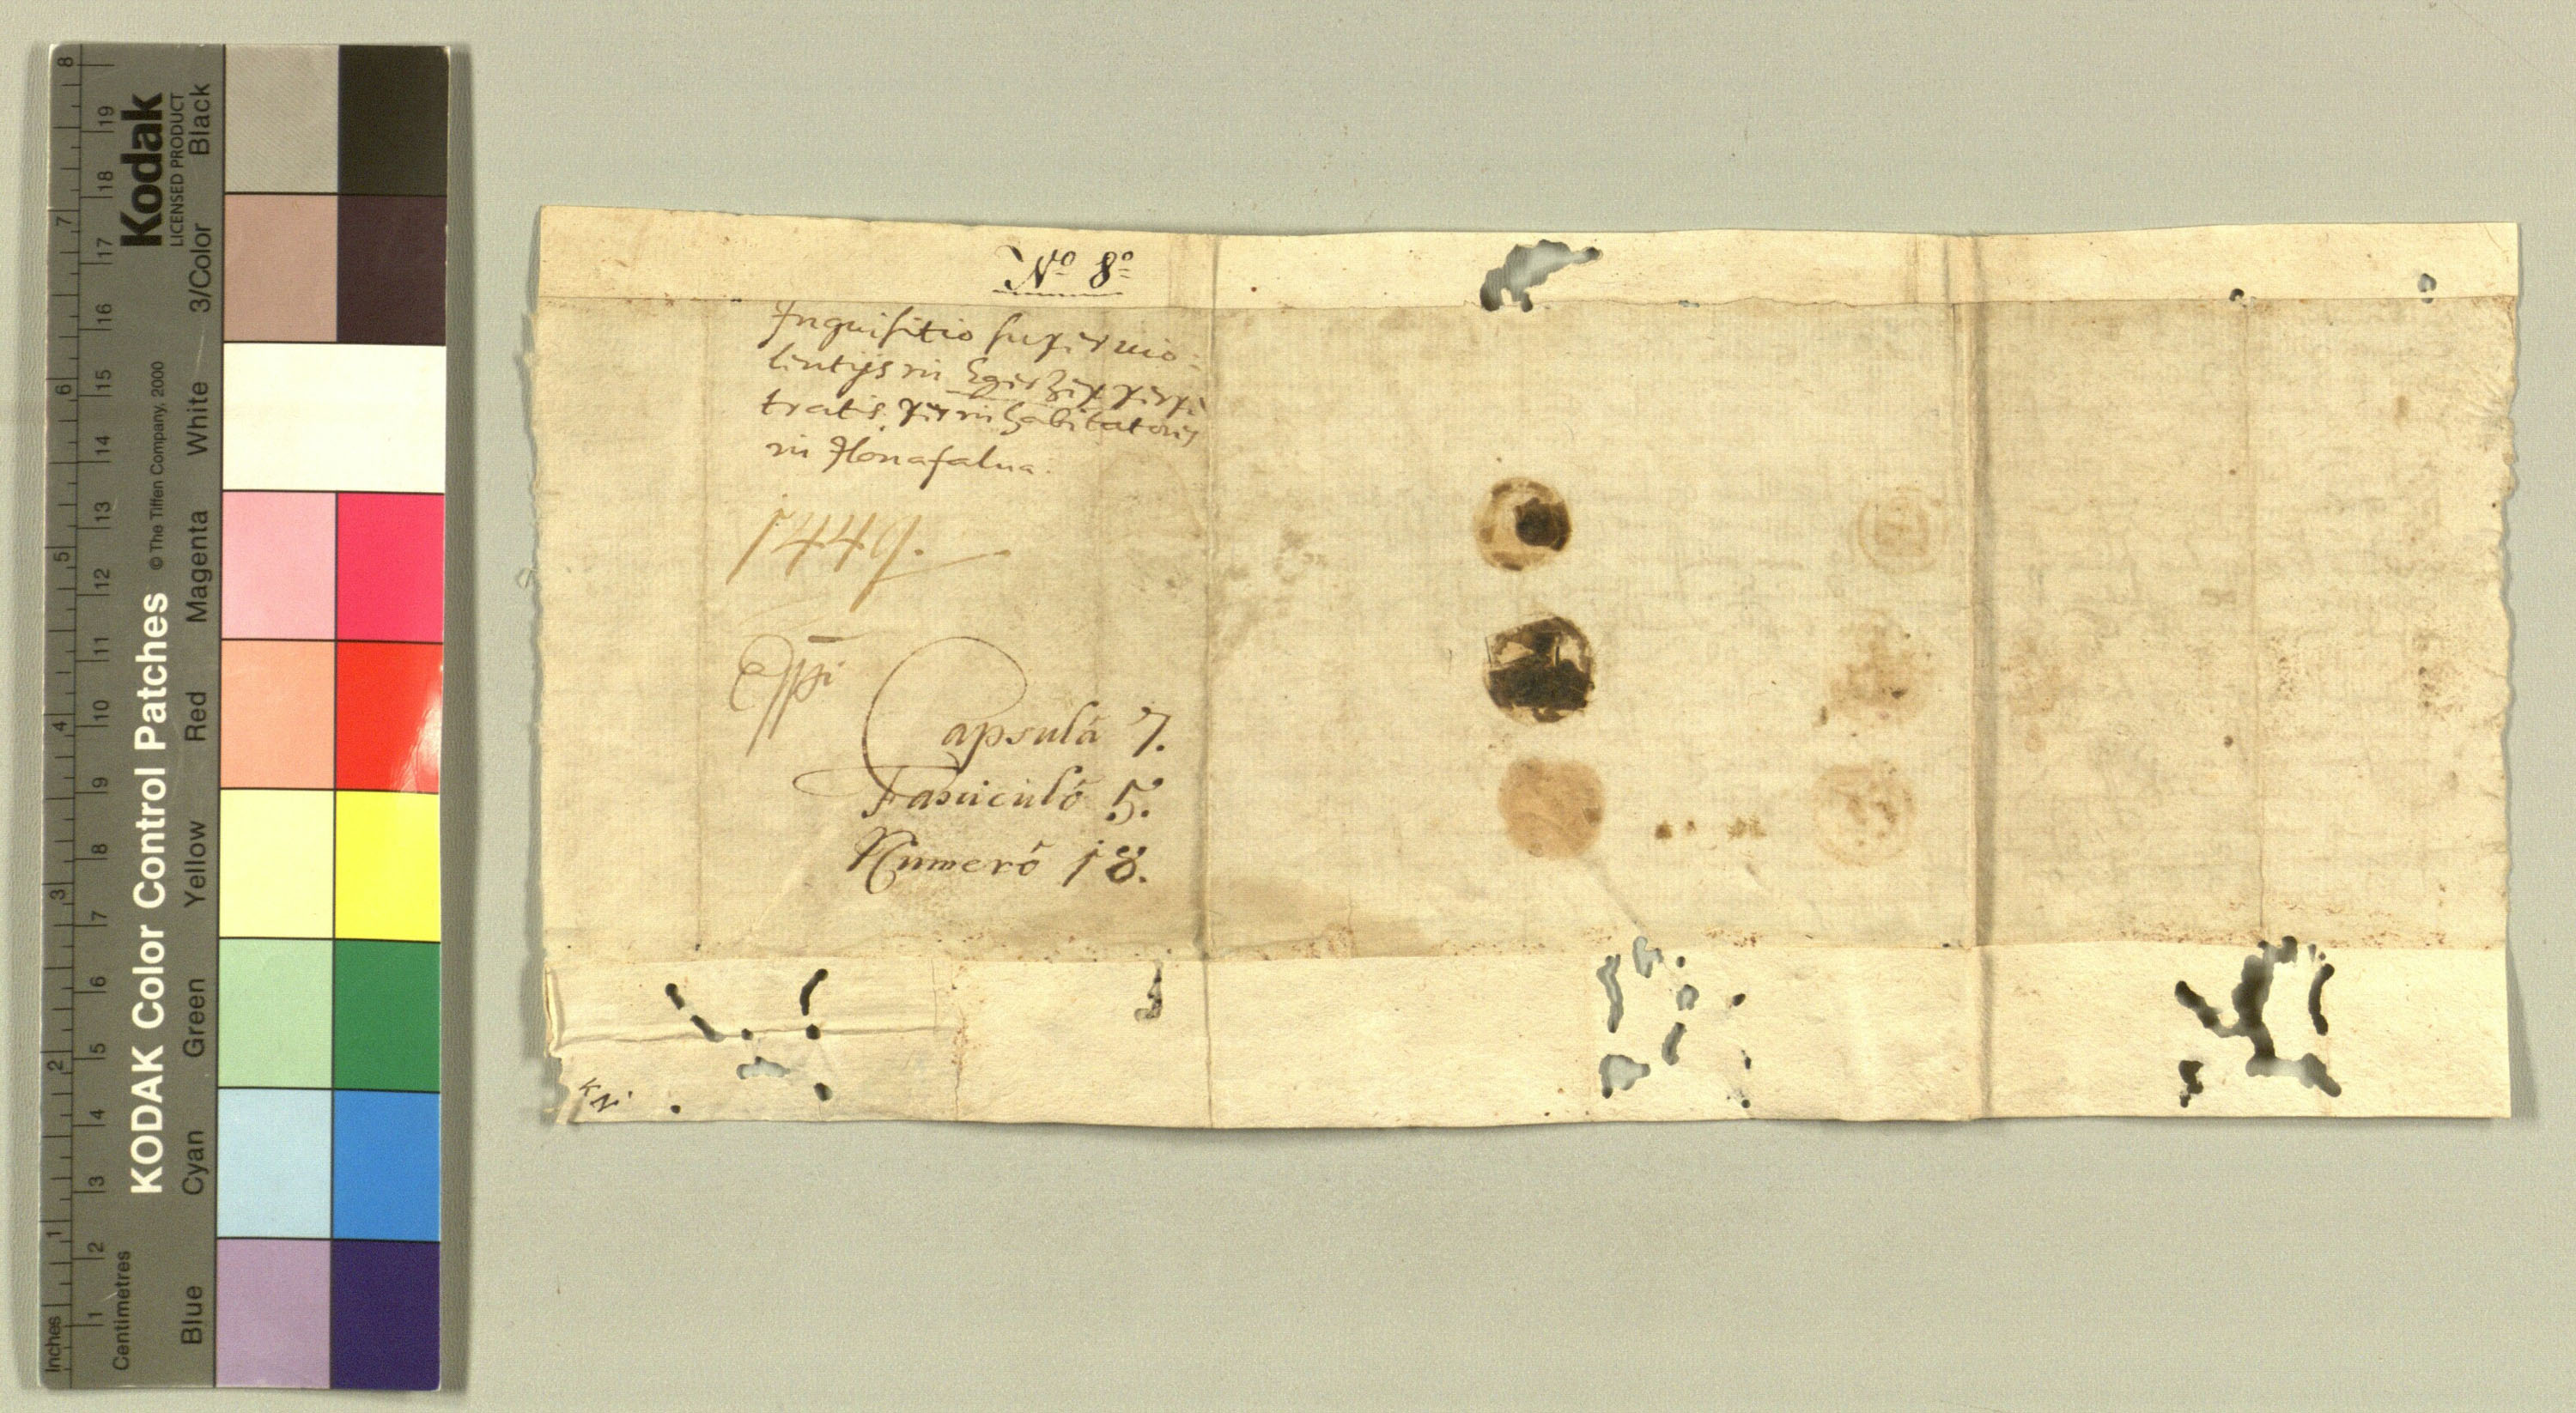 Nº 8º
Inquisitio super uio-
lentijs in Egerzegh perpe
tratis per inhabitatores
in Ilonafalua.
1449.
Eppi
Capsulâ 7.
Fasciculô 5.
Numerô 18.
Kodak
LICENSED PRODUCT
KODAK Color Control Patches
© The Tiffen Company, 2000
Black
3/Color
White
Magenta
Red
Yellow
Green
Cyan
Blue
Inches
1 2 3 4 5 6 7 8
Centimetres
1 2 3 4 5 6 7 8 9 10 11 12 13 14 15 16 17 18 19